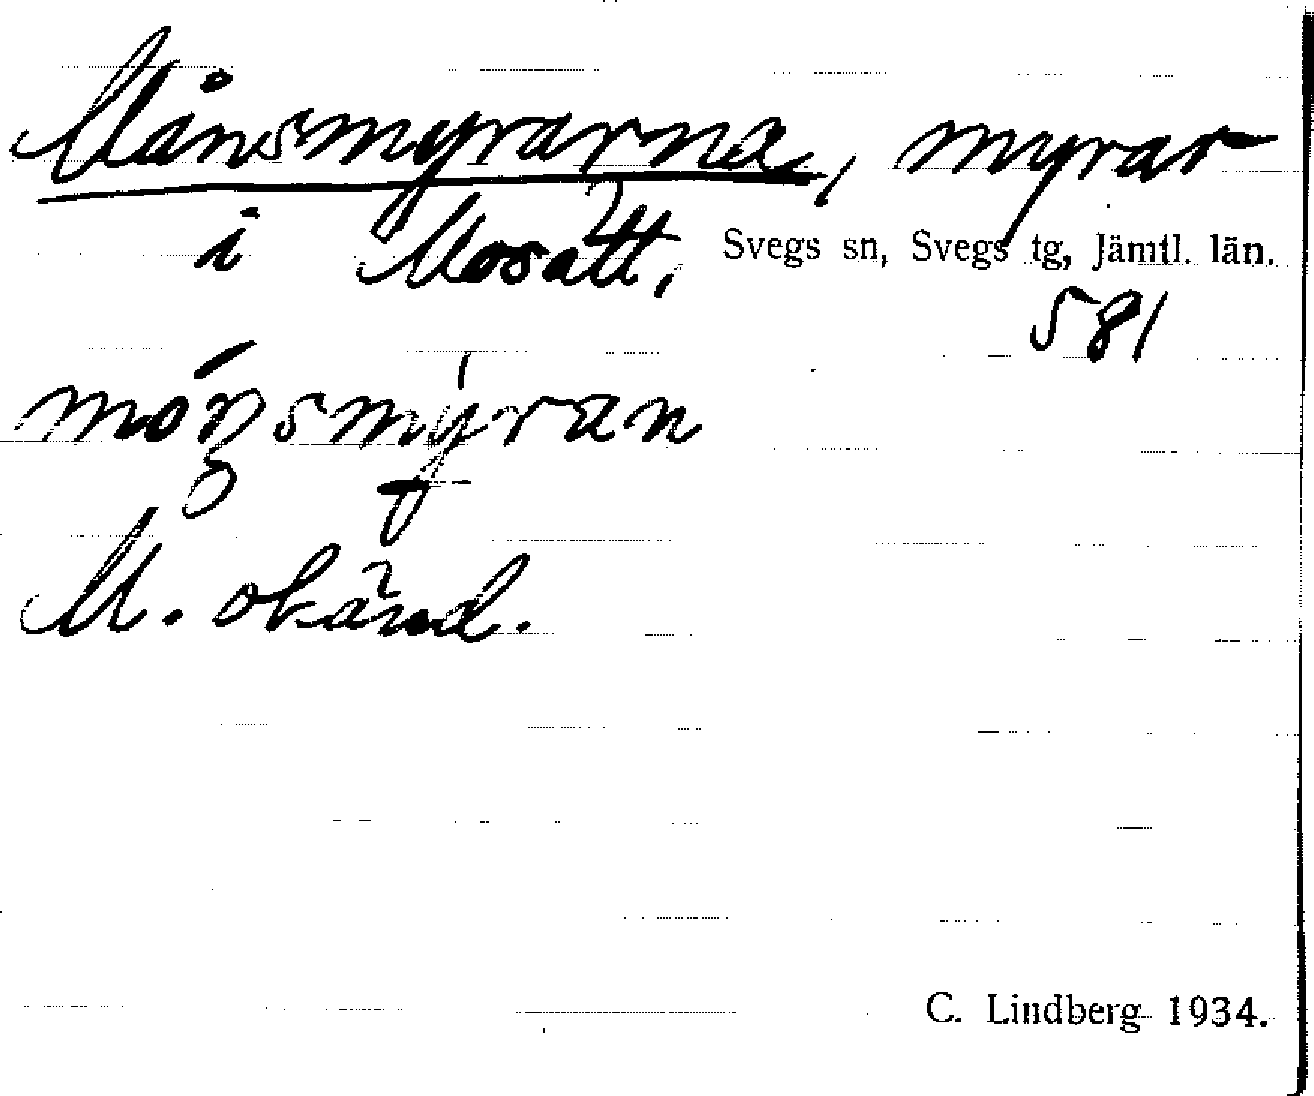 Månsmyrarna, myrar
i Mosätt, Svegs sn, Svegs tg, Jämtl. län.
581
mónsmyran
M. okänd.
C. Lindberg 1934.